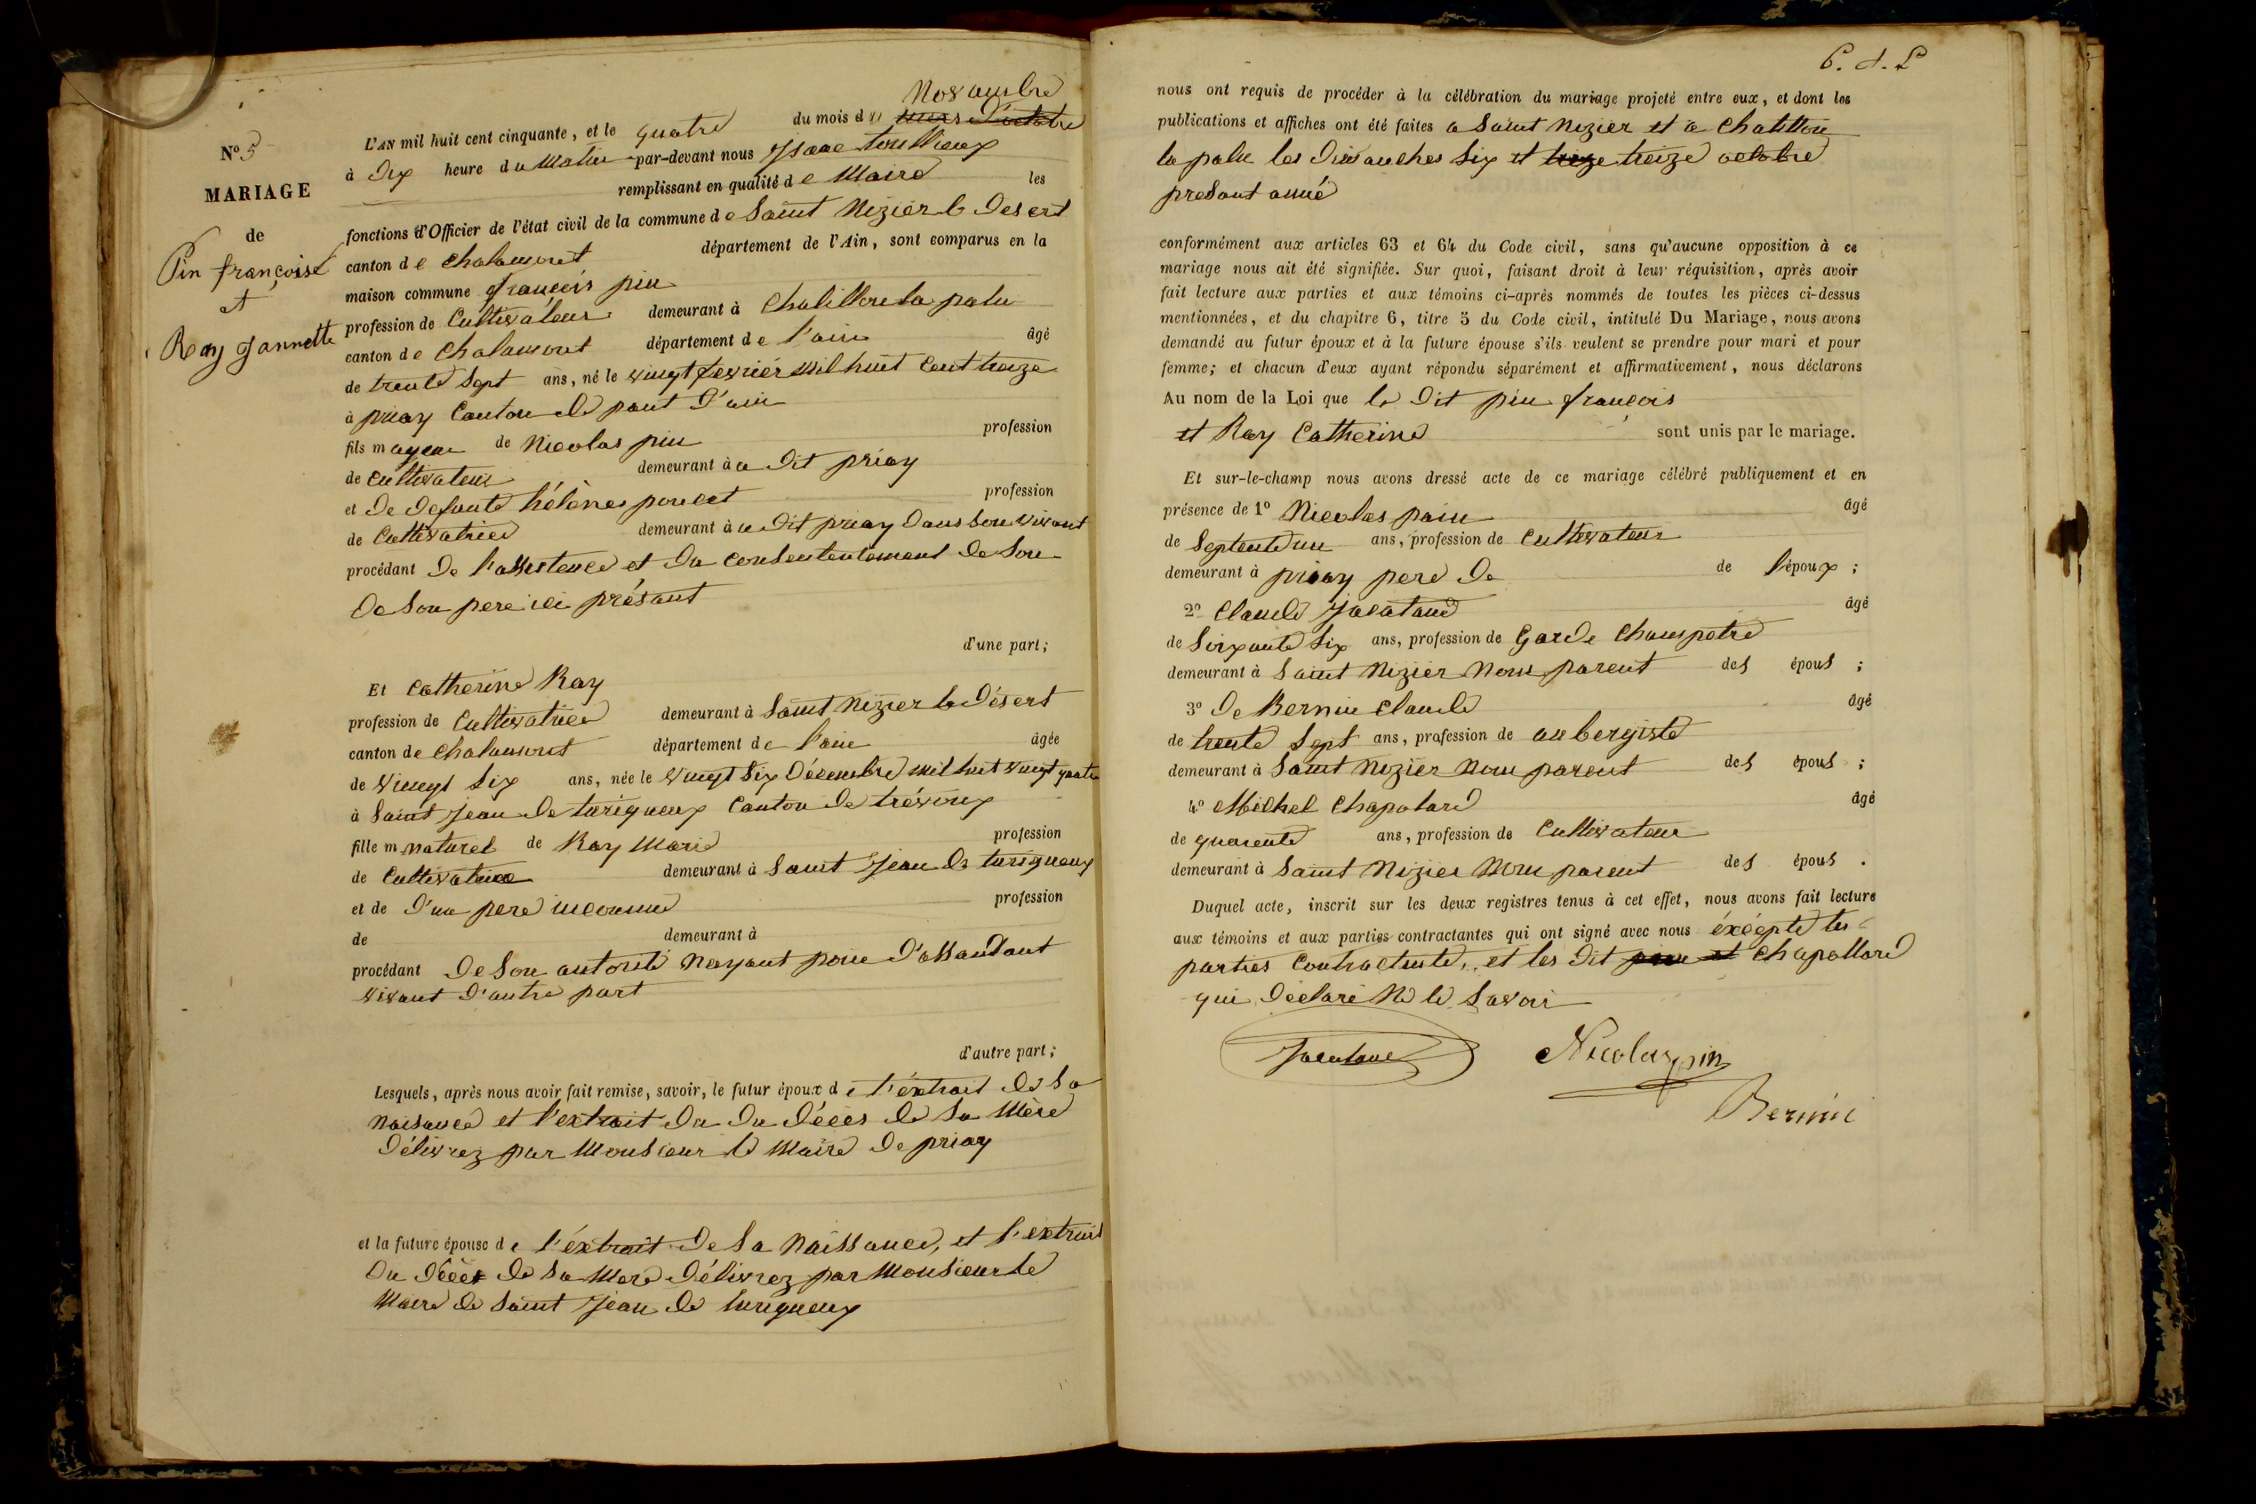 Nº 5
MARIAGE
de
Pin françoist
et
Ray Jannette
Novambre
L'AN mil huit cent cinquante, et le quatre du mois d mars d'octobre
à dix heure du Matin par-devant nous Isaac toullieux
remplissant en qualité de Maire les
fonctions d'Officier de l'état civil de la commune de Saint Nizier le Desert
canton de Chalamont département de l'Ain, sont comparus en la
maison commune françois pin
profession de Cultivateur demeurant à Chatillon la palu
canton de Chalamont département de l'ain âgé
de trente Sept ans, né le vingt fevriér mil huit Cent treize
à priay Canton de pont d'ain
fils mageur de Nicolas pin profession
de Cultivateur demeurant à a dit priay
et de defunte héléne poncet profession
de Cultivatrice demeurant à a dit priay dans son vivant
procédant de l'assistence et du consententement de Son
de Son pere ici présant
d'une part ;
Et Catherine Ray
profession de Cultivatrice demeurant à Saint Nizier le Désert
canton de Chalamont département de l'ain âgée
de vingt Six ans, née le vingt Six Décembre mil huit vingt quatre
à Saint Jean de turigneux Canton de trévoux
fille m naturel de Ray Marie profession
de Cultivatrice demeurant à Saint Jean de turigneux
et de d'un pere inconnu profession
de demeurant à
procédant de Son autorité Nayant poin d'assandant
vivant d'autre part
d'autre part ;
Lesquels, après nous avoir fait remise, savoir, le futur époux de l'éxtrait de Sa
naisance et l'extrait du du Décès de Sa Mère
Délivrez par Monsieur le Maire de priay
et la future épouse de l'éxtrait de Sa Naissance, et l'extrait
du Décès de Sa Mere Délivrez par Monsieur le
Maire de Saint Jean de turigneux
6. d. L
nous ont requis de procéder à la célébration du mariage projeté entre eux, et dont les
publications et affiches ont été faites a Saint Nizier et a Chatillon
la palu les dimanches Six et treize octobre
presant anné
conformément aux articles 63 et 64 du Code civil, sans qu'aucune opposition à ce
mariage nous ait été signifiée. Sur quoi, faisant droit à leur réquisition, après avoir
fait lecture aux parties et aux témoins ci-après nommés de toutes les pièces ci-dessus
mentionnées, et du chapitre 6, titre 5 du Code civil, intitulé Du Mariage, nous avons
demandé au futur époux et à la future épouse s'ils veulent se prendre pour mari et pour
femme ; et chacun d'eux ayant répondu séparément et affirmativement, nous déclarons
Au nom de la Loi que le dit pin françois
et Ray Catherine sont unis par le mariage.
Et sur-le-champ nous avons dressé acte de ce mariage célébré publiquement et en
présence de 1º Nicolas pain âgé
de Septente un ans, profession de Cultivateur
demeurant à priay pere de de l'époux ;
2º Claude Jacatane âgé
de Soixante Six ans, profession de Garde Champetre
demeurant à Saint Nizier Non parent des épous ;
3º De Bernin Claude âgé
de trente Sept ans, profession de aubergiste
demeurant à Saint Nizier Non parent des épous ;
4º Michel Chapolard âgé
de quarente ans, profession de Cultivateur
demeurant à Saint Nizier Non parent des épous .
Duquel acte, inscrit sur les deux registres tenus à cet effet, nous avons fait lecture
aux témoins et aux parties contractantes qui ont signé avec nous éxcépté les
parties Contractente, et les dit Chapollard
qui déclaré Ne le Savoir
Jacatane
Nicolas pin
Bernin